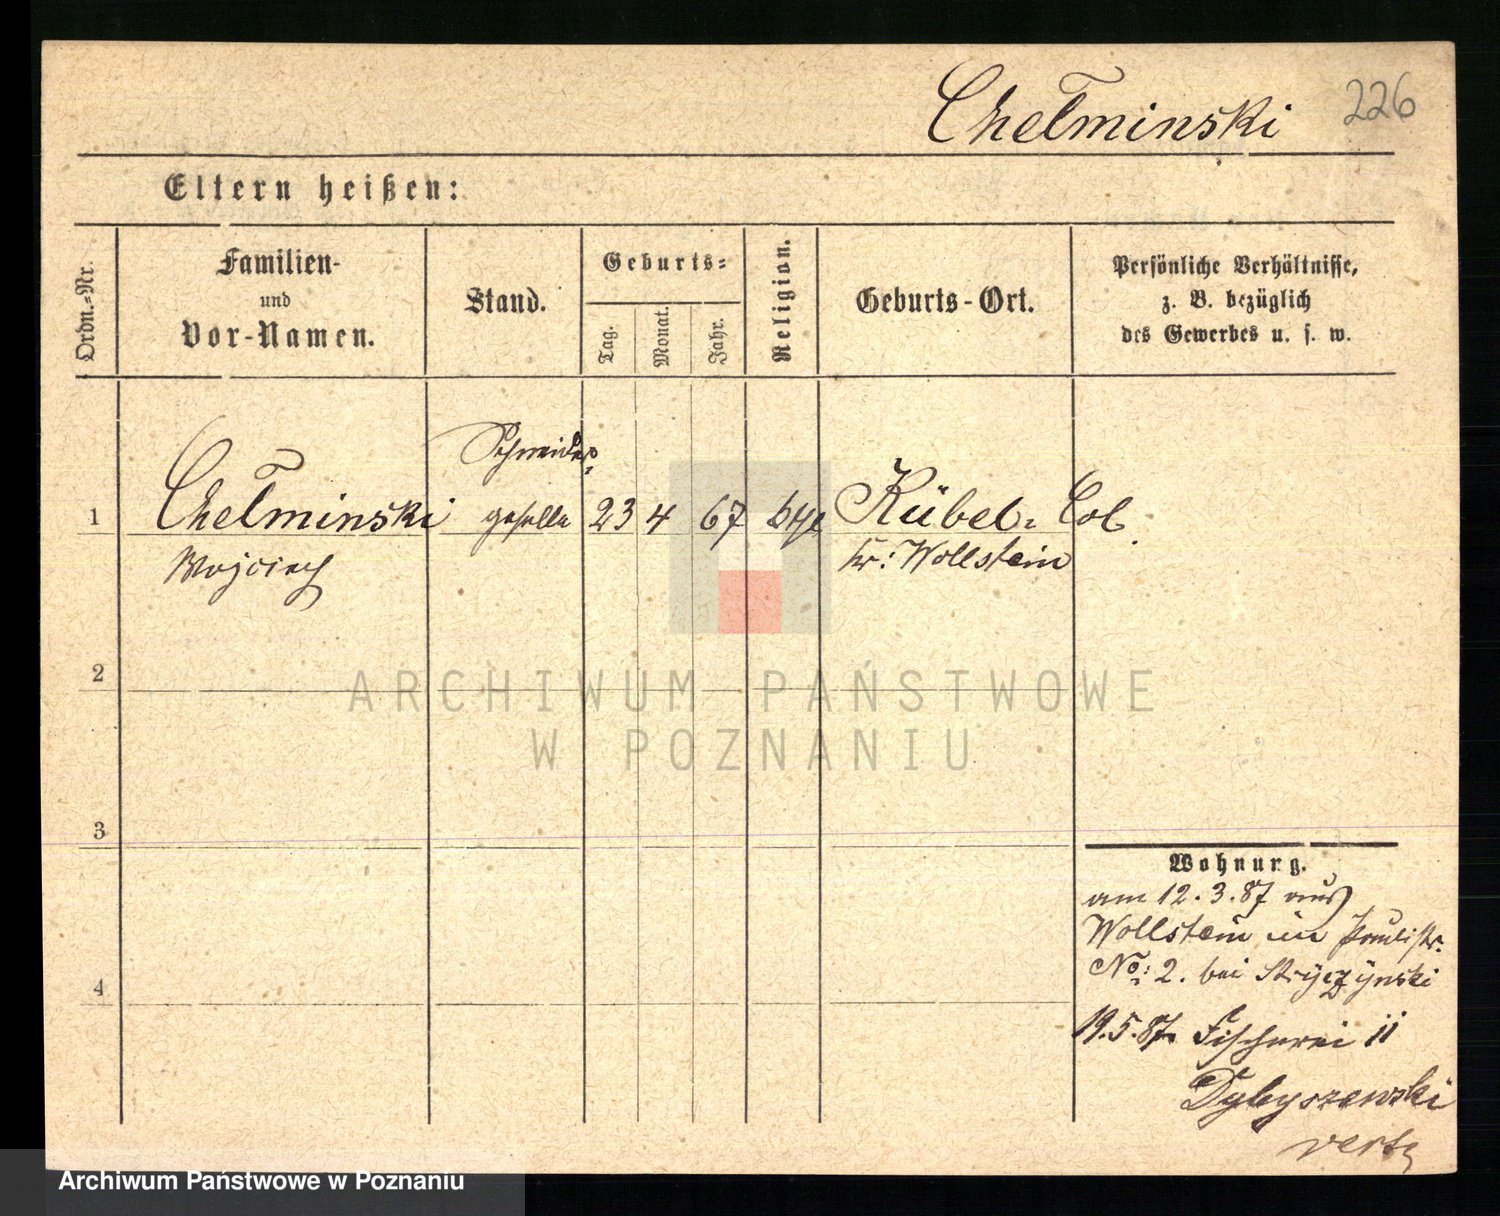 Chełminski 226
Eltern heißen:
Ordn.-Nr.
Familien-
und
Vor-Namen.
Stand.
Geburts-
Tag.
Monat.
Jahr.
Religion.
Geburts-Ort.
Persönliche Verhältnisse,
z. B. bezüglich
des Gewerbes u. s. w.
Schneider-
1 Chełminski geselle 23 4 67 Kübel. Col.
Wojciech Kr: Wollstein
2
3
4
Wohnung.
am 12.3.87 aus
Wollstein in Paulistr.
No: 2. bei
19.5.87 Fischerei 11
Dybyszewski
verte
ARCHIWUM PAŃSTWOWE
W POZNANIU
Archiwum Państwowe w Poznaniu